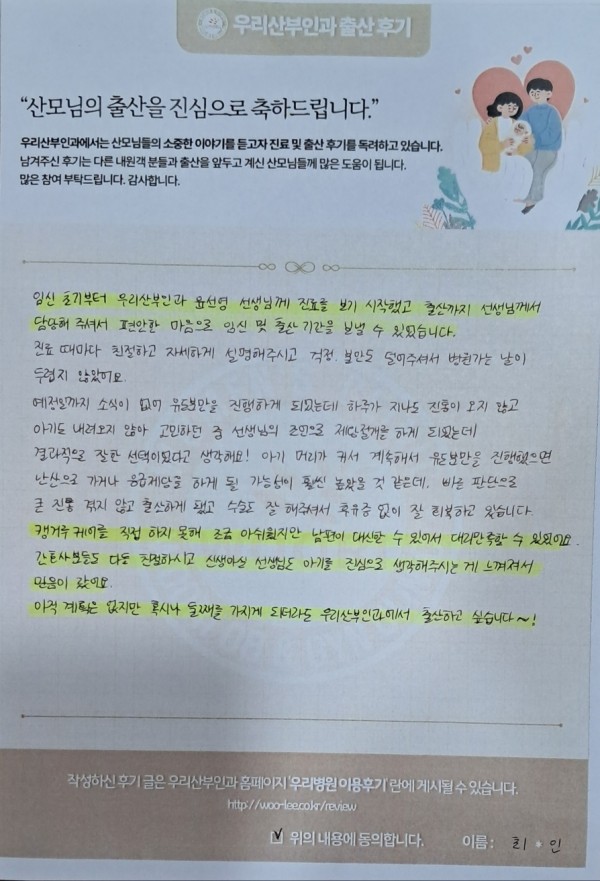 우리산부인과 출산 후기
“산모님의 출산을 진심으로 축하드립니다.”
우리산부인과에서는 산모님들의 소중한 이야기를 듣고자 진료 및 출산 후기를 독려하고 있습니다.
남겨주신 후기는 다른 내원객 분들과 출산을 앞두고 계신 산모님들께 많은 도움이 됩니다.
많은 참여 부탁드립니다. 감사합니다.
임신 초기부터 우리산부인과 윤선영 선생님께 진료를 보기 시작했고 출산까지 선생님께서
담당해 주셔서 편안한 마음으로 임신 및 출산 기간을 보낼 수 있었습니다.
진료 때마다 친절하고 자세하게 설명해주시고 걱정, 불안도 덜어주셔서 병원가는 날이
두렵지 않았어요.
예정일까지 소식이 없어 유도분만을 진행하게 되었는데 하루가 지나도 진통이 오지 않고
아기도 내려오지 않아 고민하던 중 선생님의 조언으로 제왕절개를 하게 되었는데
결과적으로 잘한 선택이었다고 생각해요! 아기 머리가 커서 계속해서 유도분만을 진행했으면
난산으로 가거나 응급제왕을 하게 될 가능성이 훨씬 높았을 것 같은데, 빠른 판단으로
큰 진통 겪지 않고 출산하게 됐고 수술도 잘 해주셔서 후유증 없이 잘 회복하고 있습니다.
캥거루 케어를 직접 하지 못해 조금 아쉬웠지만 남편이 대신할 수 있어서 대리만족할 수 있었어요.
간호사분들도 다들 친절하시고 신생아실 선생님도 아기를 진심으로 생각해주시는 게 느껴져서
믿음이 갔어요.
아직 계획은 없지만 혹시나 둘째를 가지게 되더라도 우리산부인과에서 출산하고 싶습니다~!
작성하신 후기 글은 우리산부인과 홈페이지 '우리병원 이용후기' 란에 게시될 수 있습니다.
http://woo-lee.co.kr/review
☑ 위의 내용에 동의합니다. 이름 : 최 * 인